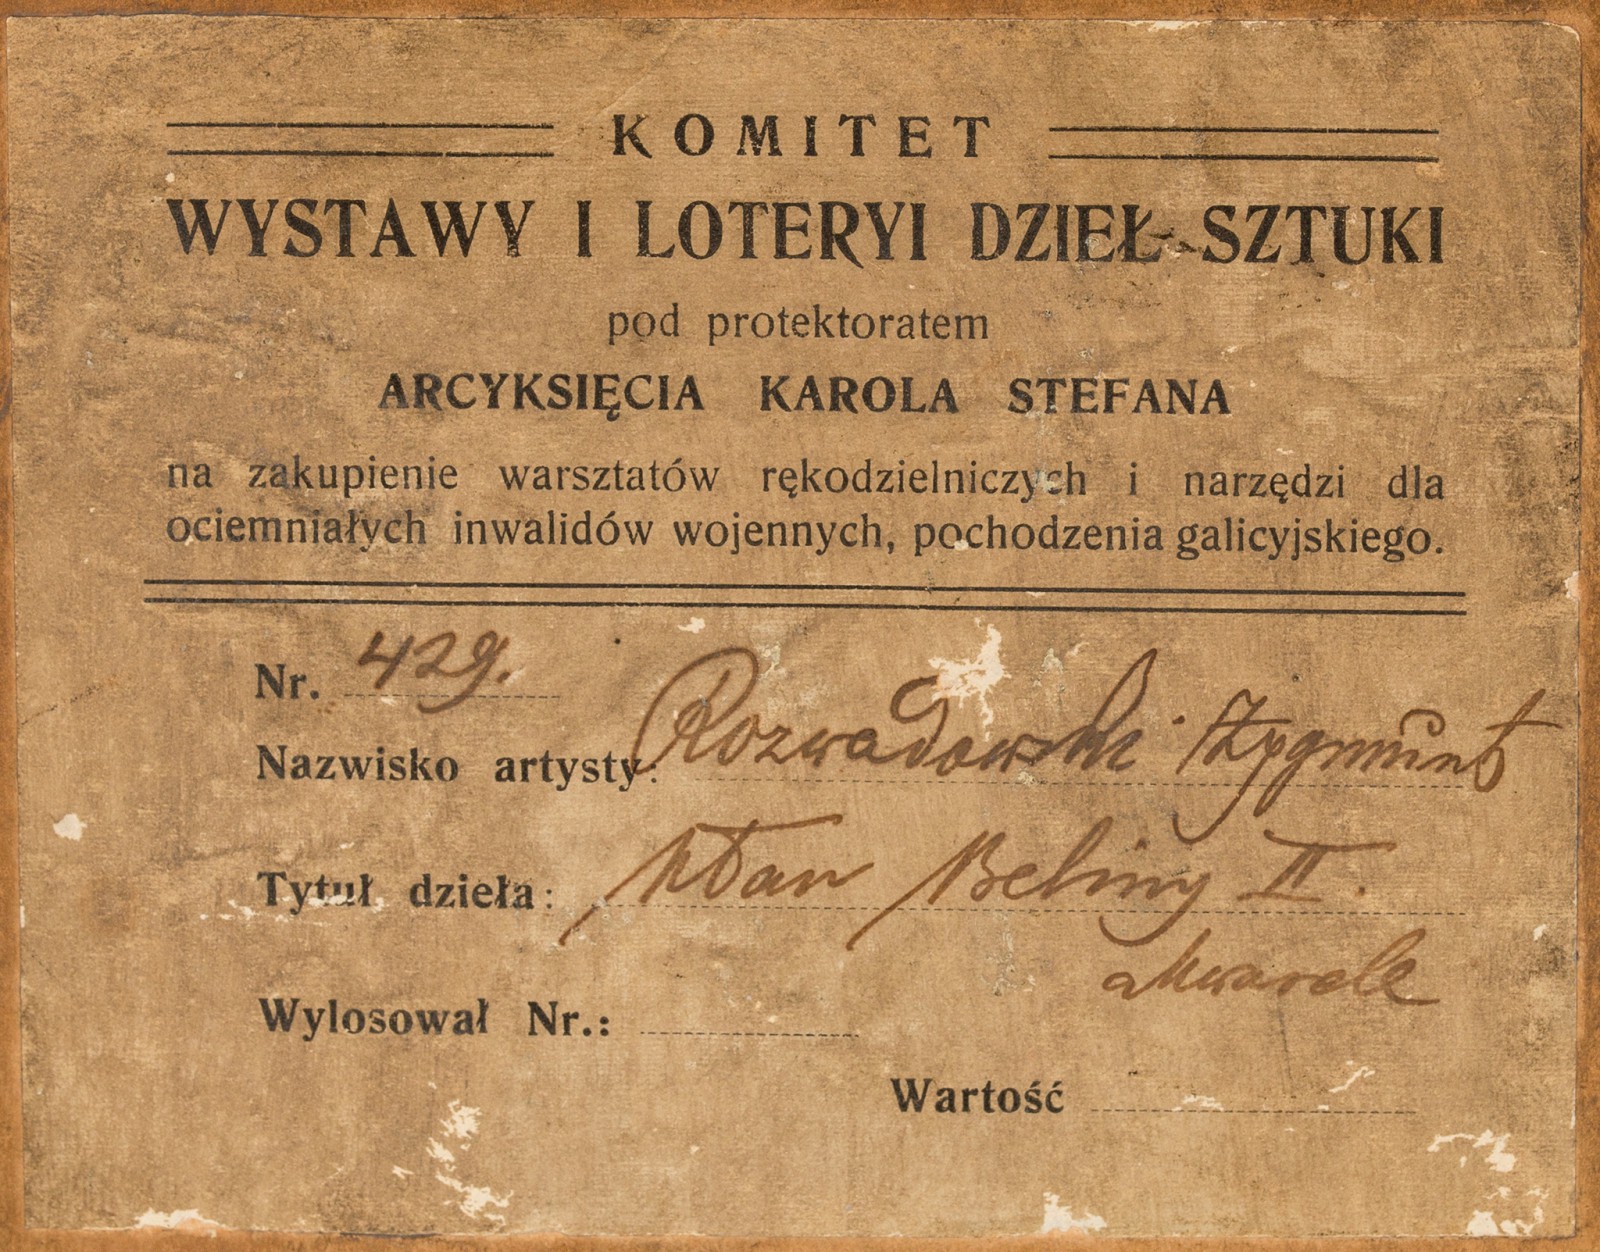 KOMITET
WYSTAWY I LOTERYI DZIEŁ SZTUKI
pod protektoratem
ARCYKSIĘCIA KAROLA STEFANA
na zakupienie warsztatów rękodzielniczych i narzędzi dla
ociemniałych inwalidów wojennych, pochodzenia galicyjskiego.
Nr. 429.
Nazwisko artysty: Rozwadowski Zygmunt
Tytuł dzieła: Ułan Beliny II.
akwarela
Wylosował Nr.:
Wartość